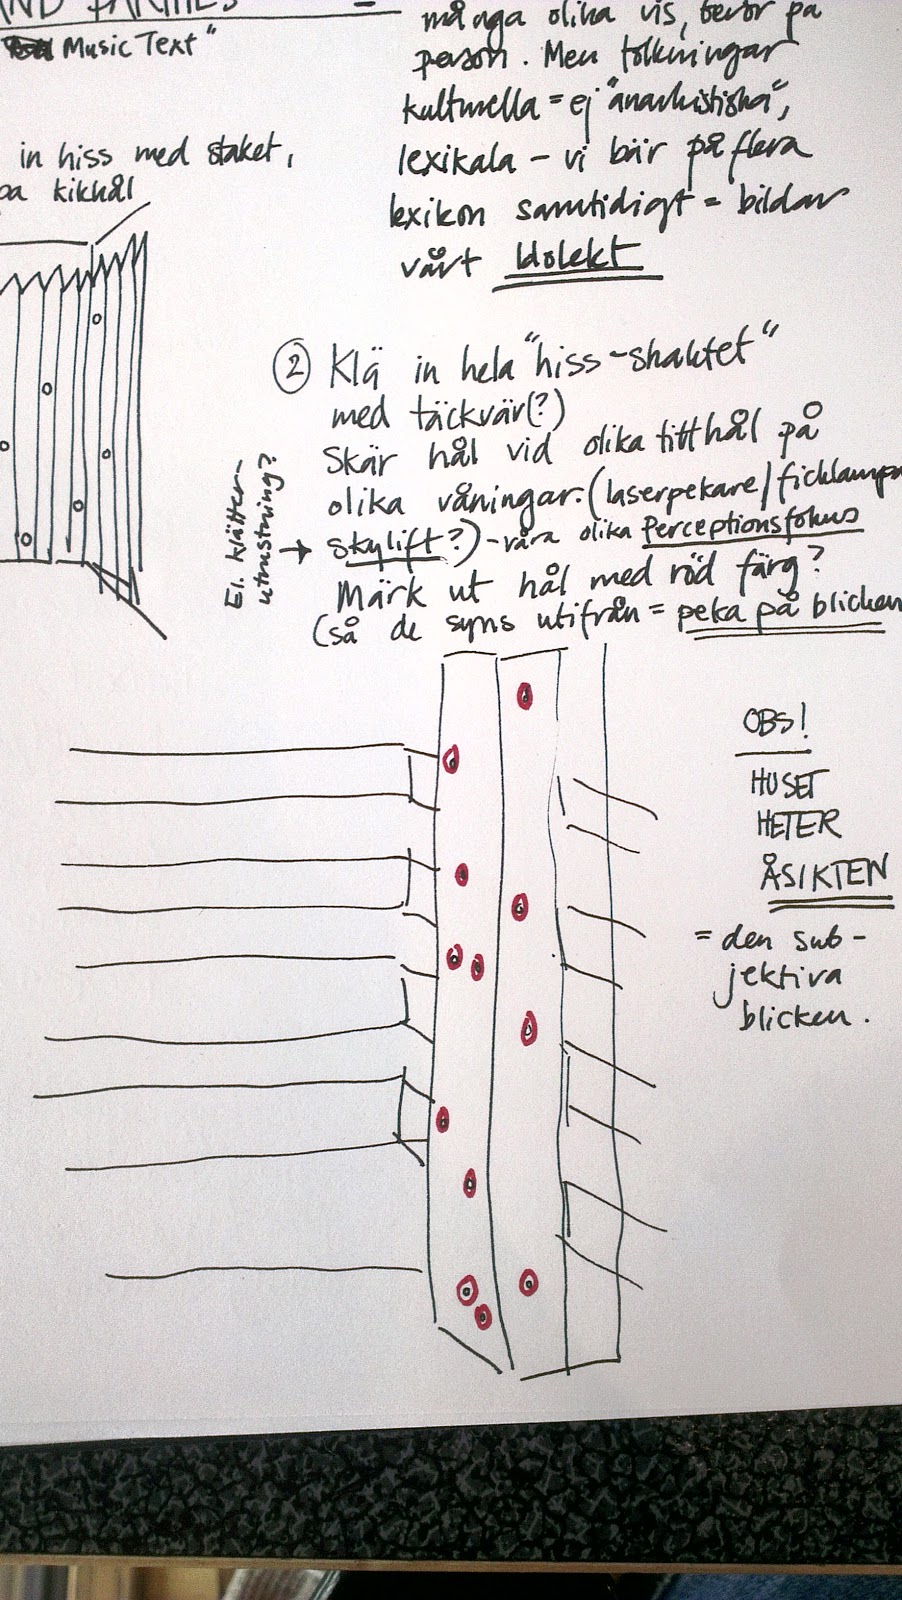 "Music Text"
in hiss med staket,
kikhål
många olika vis, beror på
person. Men tolkningar
kulturella = ej "anarkistiska",
lexikala - vi bär på flera
lexikon samtidigt = bildar
vårt Idolekt
② Klä in hela "hiss-shaktet"
med täckvär(?)
Skär hål vid olika titthål på
olika våningar. (laserpekare/ficklampa
El. klätter-
utrustning?
→ skylift?) - våra olika Perceptionsfokus
Märk ut hål med röd färg?
(så de syns utifrån = peka på blicken
OBS!
HUSET
HETER
ÅSIKTEN
= den sub-
jektiva
blicken.